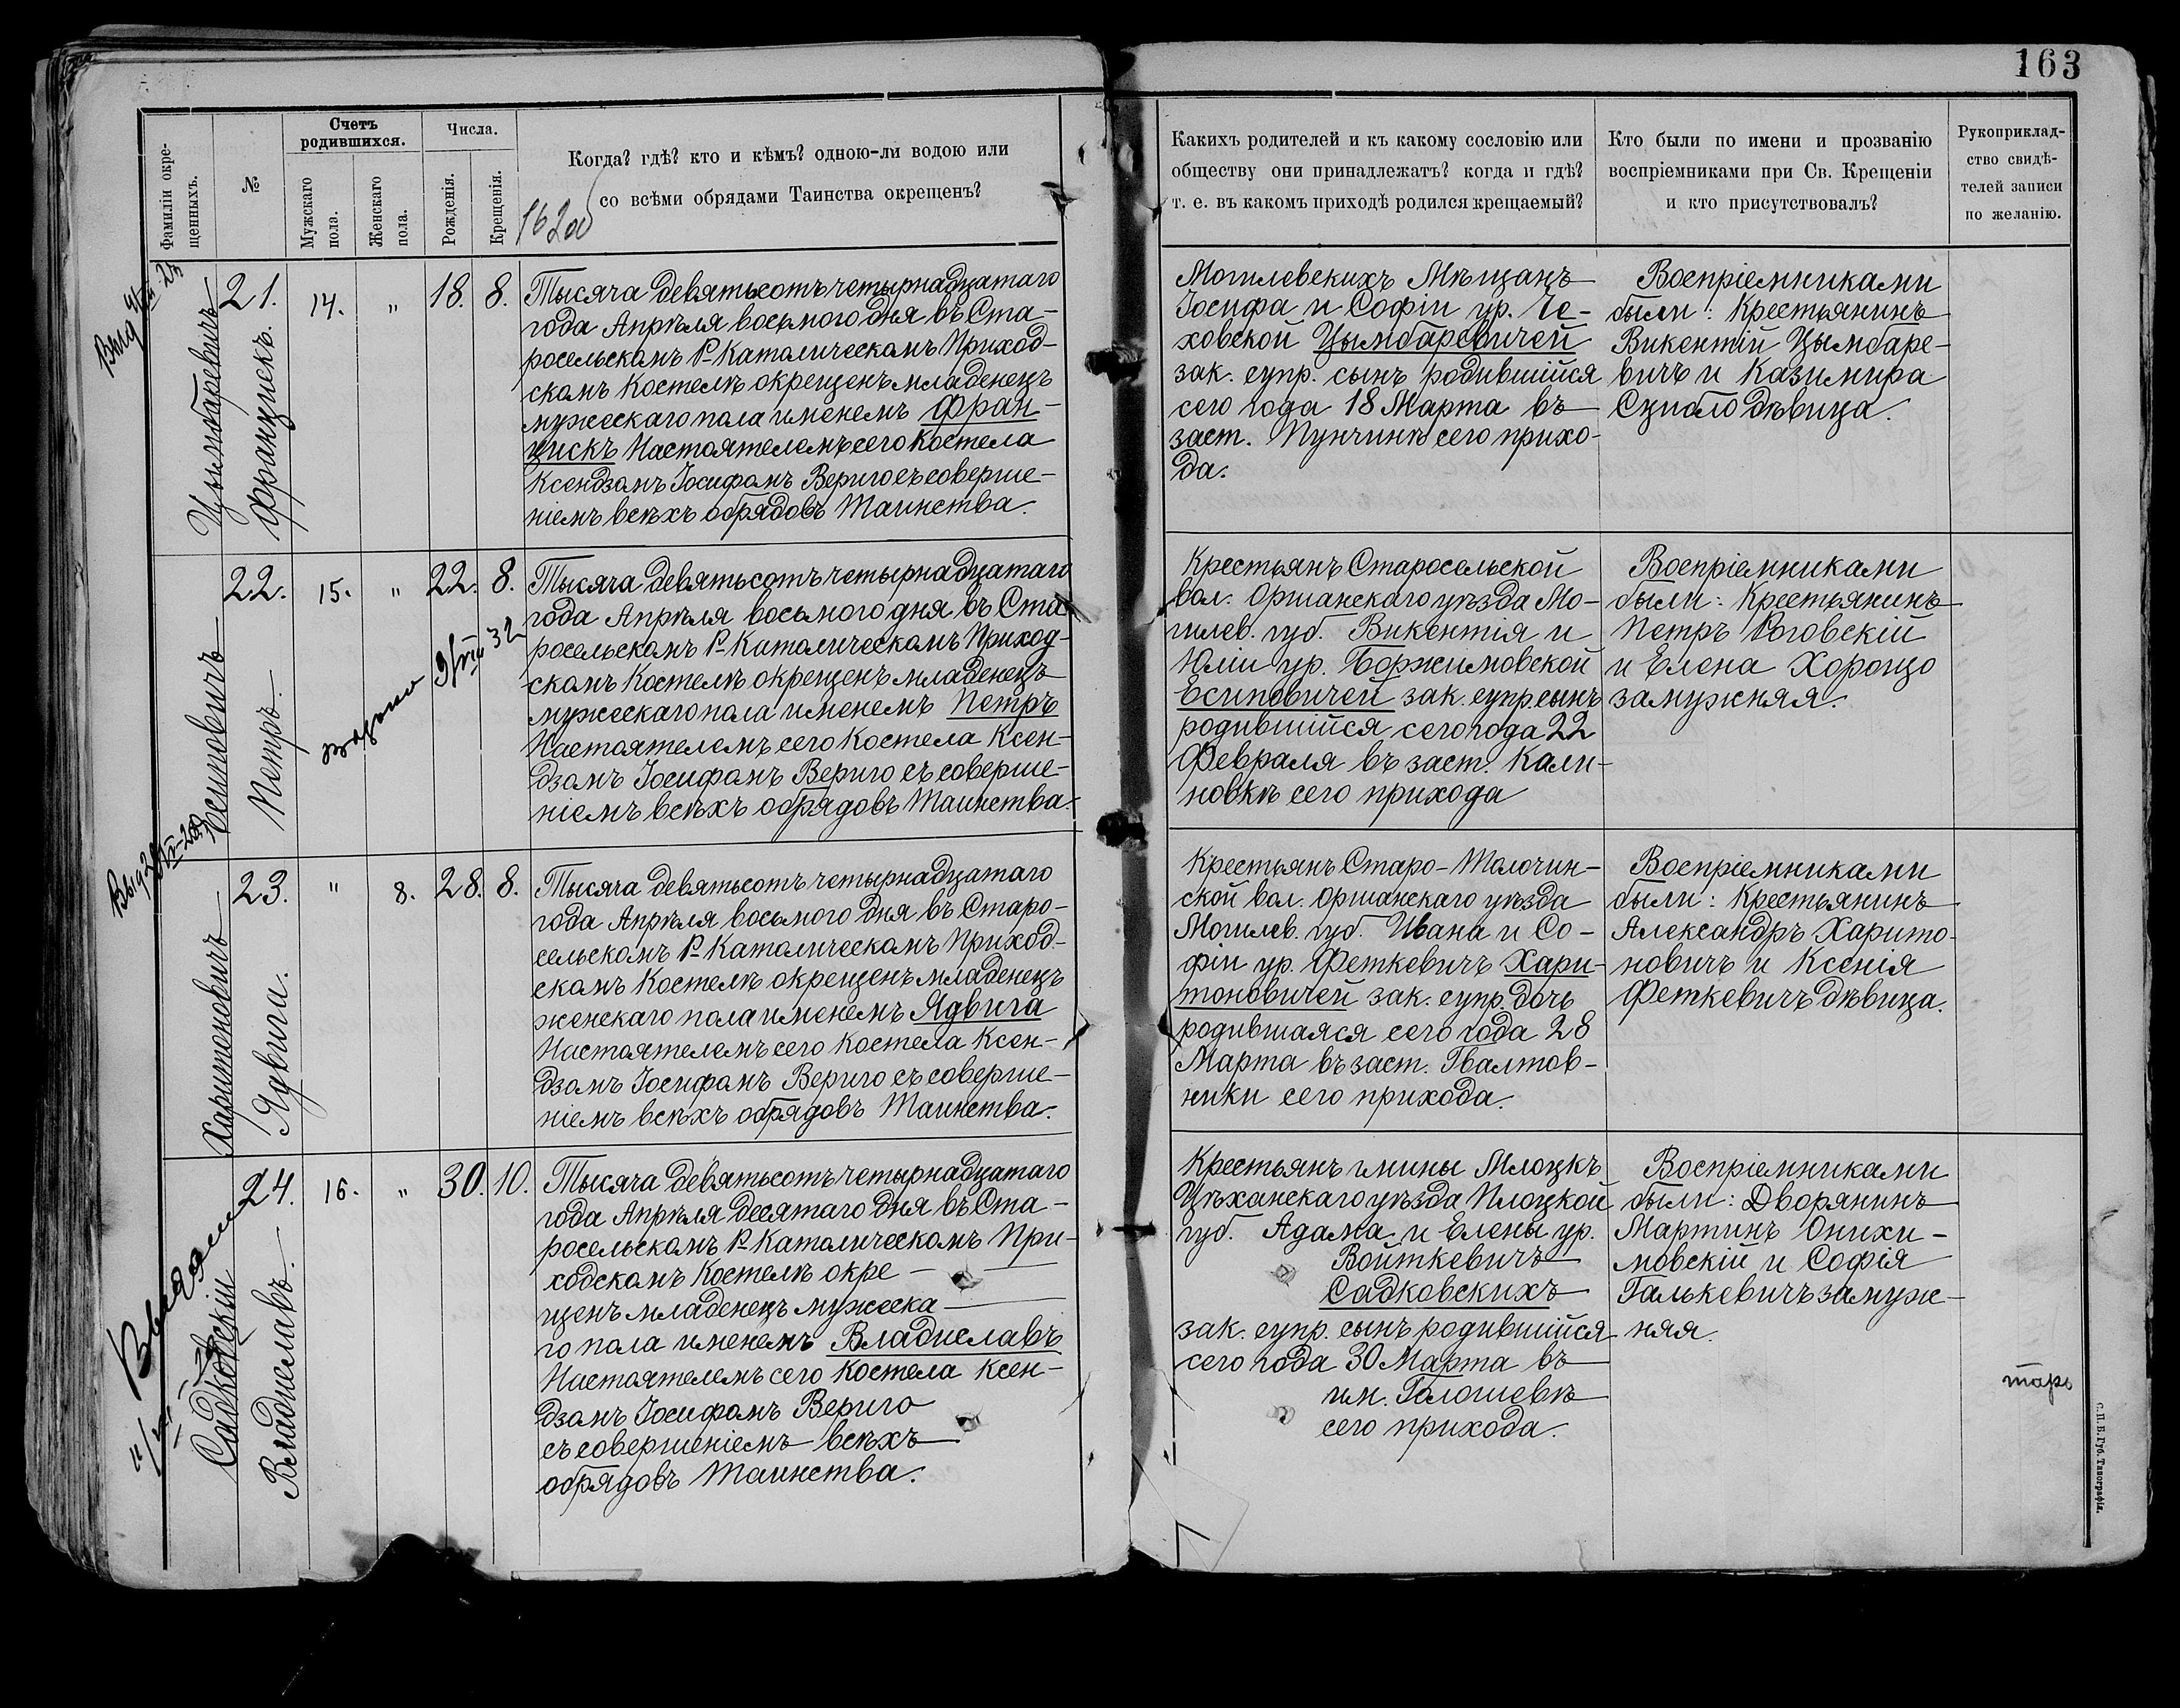 163
Фамиліи окре-
щенныхъ.
№
Счетъ
родившихся.
Мужскаго
пола.
Женскаго
пола.
Числа.
Рожденія.
Крещенія.
Когда? гдѣ? кто и кѣмъ? одною-ли водою или
со всѣми обрядами Таинства окрещенъ?
Какихъ родителей и къ какому сословію или
обществу они принадлежатъ? когда и гдѣ?
т. е. въ какомъ приходѣ родился крещаемый?
Кто были по имени и прозванію
воспріемниками при Св. Крещеніи
и кто присутствовалъ?
Рукоприклад-
ство свидѣ-
телей записи
по желанію.
Цымбаревичъ
Францискъ.
21.
14.
„
18.
8.
Тысяча девятьсотъ четырнадцатаго
года Апрѣля восьмого дня въ Ста-
росельскомъ Р-Католическомъ Приход-
скомъ Костелѣ окрещенъ младенецъ
мужескаго пола именемъ Фран-
цискъ Настоятелемъ сего Костела
Ксендзомъ Іосифомъ Вериго съ соверше-
ніемъ всѣхъ обрядовъ Таинства.
Могилевскихъ Мѣщанъ
Іосифа и Софіи ур. Че-
ховской Цымбаревичей
зак. супр. сынъ родившійся
сего года 18 Марта въ
заст. Пунчинѣ сего прихо-
да.
Воспріемниками
были: Крестьянинъ
Викентій Цымбаре-
вичъ и Казимира
Сцибло дѣвица.
Есиповичъ
Петръ.
22.
15.
„
22.
8.
Тысяча девятьсотъ четырнадцатаго
года Апрѣля восьмого дня въ Ста-
росельскомъ Р-Католическомъ Приход-
скомъ Костелѣ окрещенъ младенецъ
мужескаго пола именемъ Петръ
Настоятелемъ сего Костела Ксен-
дзомъ Іосифомъ Вериго съ соверше-
ніемъ всѣхъ обрядовъ Таинства.
Крестьянъ Старосельской
вол. Оршанскаго уѣзда Мо-
гилев. губ. Викентія и
Юліи ур. Боржимовской
Есиповичей зак. супр. сынъ
родившійся сего года 22
Февраля въ заст. Кали-
новкѣ сего прихода
Воспріемниками
были: Крестьянинъ
Петръ Роговскій
и Елена Хоронцо
замужняя.
Харитоновичъ
Ядвига.
23.
"
8.
28.
8.
Тысяча девятьсотъ четырнадцатаго
года Апрѣля восьмого дня въ Старо-
сельскомъ Р-Католическомъ Приход-
скомъ Костелѣ окрещенъ младенецъ
женскаго пола именемъ Ядвига
Настоятелемъ сего Костела Ксен-
дзомъ Іосифомъ Вериго съ соверше-
ніемъ всѣхъ обрядовъ Таинства.
Крестьянъ Старо-Толочин-
ской вол. Оршанскаго уѣзда
Могилев. губ. Ивана и Со-
фіи ур. Феткевичъ Хари-
тоновичей зак. супр. дочь
родившаяся сего года 28
Марта въ заст. Гвалтов-
ники сего прихода.
Воспріемниками
были: Крестьянинъ
Александръ Харито-
новичъ и Ксенія
Феткевичъ дѣвица.
Садковскій
Владиславъ.
24.
16.
„
30.
10.
Тысяча девятьсотъ четырнадцатаго
года Апрѣля десятаго дня въ Ста-
росельскомъ Р-Католическомъ При-
ходскомъ Костелѣ окре-
щенъ младенецъ мужеска-
го пола именемъ Владиславъ
Настоятелемъ сего Костела Ксен-
дзомъ Іосифомъ Вериго
съ совершеніемъ всѣхъ
обрядовъ Таинства.
Крестьянъ гмины Млоцкъ
Цѣханскаго уѣзда Плоцкой
губ. Адама и Елены ур.
Войткевичъ
Садковскихъ
зак. супр. сынъ родившійся
сего года 30 Марта въ
им. Голошевкѣ
сего прихода.
Воспріемниками
были: Дворянинъ
Мартинъ Онихи-
мовскій и Софія
Галькевичъ замуж-
няя.
тарь
С.П.Б. Губ. Типографія.